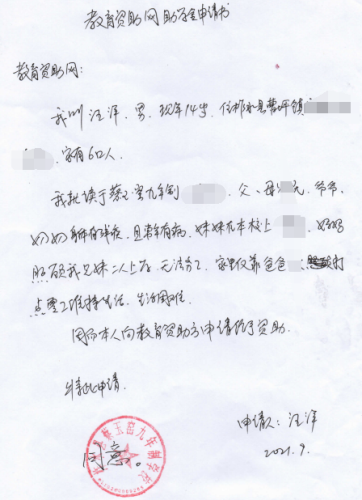 教育资助网助学金申请书
教育资助网：
我叫汪洋，男，现年14岁，住柞水县营坪镇
，家有6口人。
我就读于蔡玉窑九年制 ，父、母 元，爷爷，
奶奶 有残疾，且常年有病，妹妹在本校上 ，妈妈
照顾我兄妹二人上学，无法务工，家里仅靠爸爸 打
点零工维持生活，生活困难
因而本人向教育资助方申请给予资助。
特此申请。
同意。
蔡玉窑九年制学校
申请人：汪洋
2021.9.